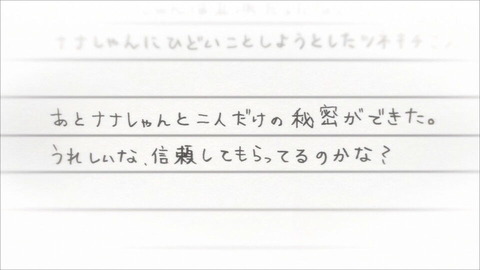 ナナしゃんにひどいことしようとしたツネキチ
あとナナしゃんと二人だけの秘密ができた。
うれしいな、信頼してもらってるのかな？